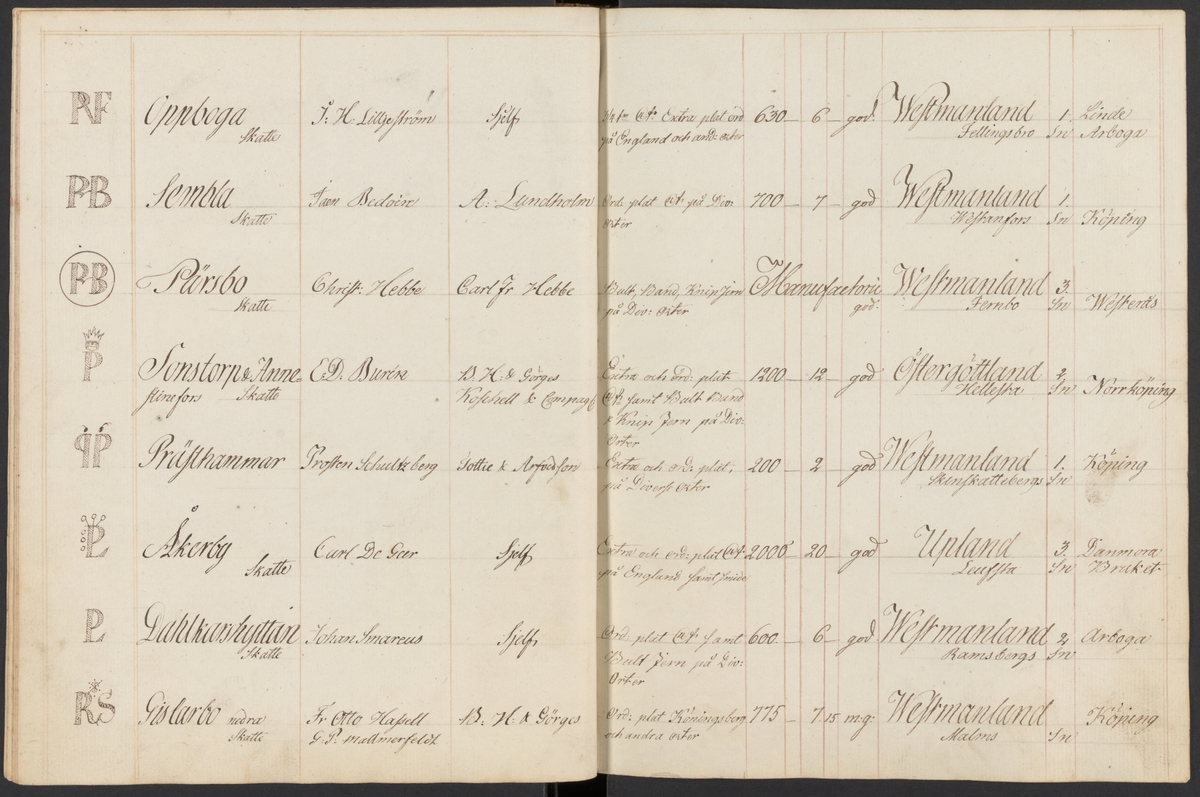 RF Oppboga J: H: Lilljeström Sjelf Extra plat ord 630 — 6 — god. Westmanland 1. Linde
Skatte på England och and: orter Fellingsbro Sn Arboga
PB Sembla Jean Bedoire A: Lundholm Ord: plat på Div: 700 — 7 — god Westmanland 1.
Skatte orter Westanfors Sn Köping
PB Pärsbo Christ: Hebbe Carl Fr Hebbe Bult, Band, Knip Jern Manufactorie Westmanland 3.
Skatte på Div: orter god. Fernbo Sn Westerås
P Sonstorp & Anne= E: D: Burén B. H: & Görges Extra och ord: plat 1200 — 12 — god Östergöttland 2. Norrköping
stinefors Skatte Koschell & Compag samt Bult Band Hellesta Sn
& Knip Jern på Div:
Orter
PP Prästhammar Trosten Schultzberg Tottie & Arfvedson Extra och ord: plat, 200 — 2 — god Westmanland 1. Köping
på Diverse orter Skinskattebergs Sn
L Åkerby Carl De Geer Sjelf Extra och ord: plat 2000 — 20 — god Upland 3. Danmora
Skatte på England samt Leufsta Sn Bruket
L Dahlkarshyttan Johan Smareus Sjelf Ord: plat samt 600. — 6 — god Westmanland 2. Arboga
Skatte Bult Jern på Div: Ramsbergs Sn
Orter
RS Gislarbo nedra Fr Otto Hassell B: H: & Görges Ord: plat Köningsberg 775 — 7 15 m.g: Westmanland Köping
Skatte G. P: Mallmerfeldt och andra orter Malms Sn